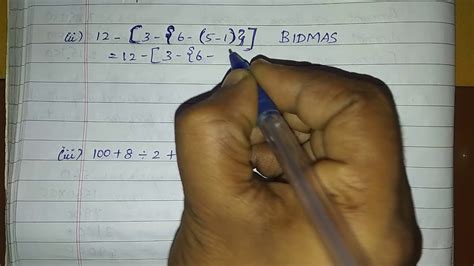 (ii) 12 - [3 - {6 - (5-1)}] BIDMAS
= 12 - [3 - {6 -
(iii) 100 + 8 ÷ 2 +